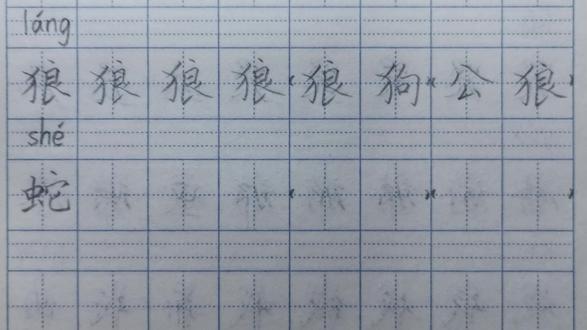 láng
狼 狼 狼 狼（狼 狗）（公 狼）
shé
蛇（ ）（ ）